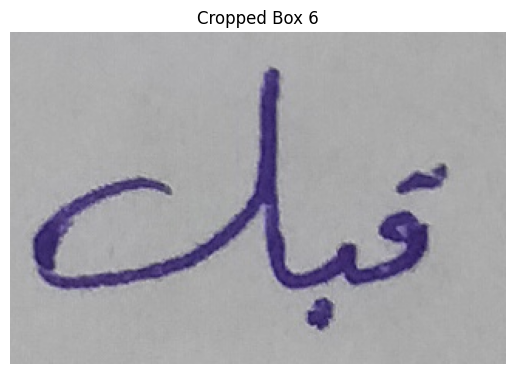 Cropped Box 6
قبل